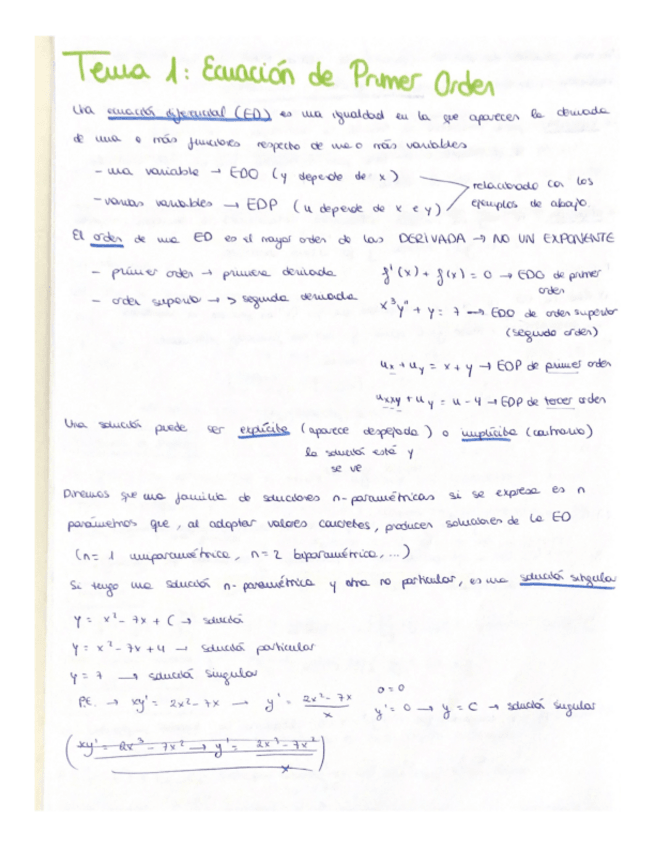 Tema 1: Ecuación de Primer Orden
Una ecuación diferencial (ED) es una igualdad en la que aparecen la derivada
de una o más funciones respecto de una o más variables
- una variable → EDO (y depende de x)
- varias variables → EDP (u depende de x e y)
relacionado con los
ejemplos de abajo.
El orden de una ED es el mayor orden de las DERIVADA → NO UN EXPONENTE
- primer orden → primera derivada
f'(x) + f(x) = 0 → EDO de primer
orden
- orden superior → > segunda derivada
x³y'' + y = 7 → EDO de orden superior
(segundo orden)
ux + uy = x + y → EDP de primer orden
uxxy + uy = u - 4 → EDP de tercer orden
Una solución puede ser explícita (aparece despejada) o implícita (contrario)
la solución está y
se ve
Diremos que una familia de soluciones n-paramétricas si se expresa es n
parámetros que, al adoptar valores concretos, producen soluciones de la ED
(n = 1 uniparamétrica, n = 2 biparamétrica, ...)
Si tengo una solución n-paramétrica y otra no particular, es una solución singular
y = x² - 7x + C → solución
y = x² - 7x + 4 → solución particular
y = 7 → solución singular
P.E. → xy' = 2x² - 7x → y' = 2x² - 7x / x
0 = 0
y' = 0 → y = C → solución singular
(xy' = 2x³ - 7x² → y' = 2x³ - 7x² / x)